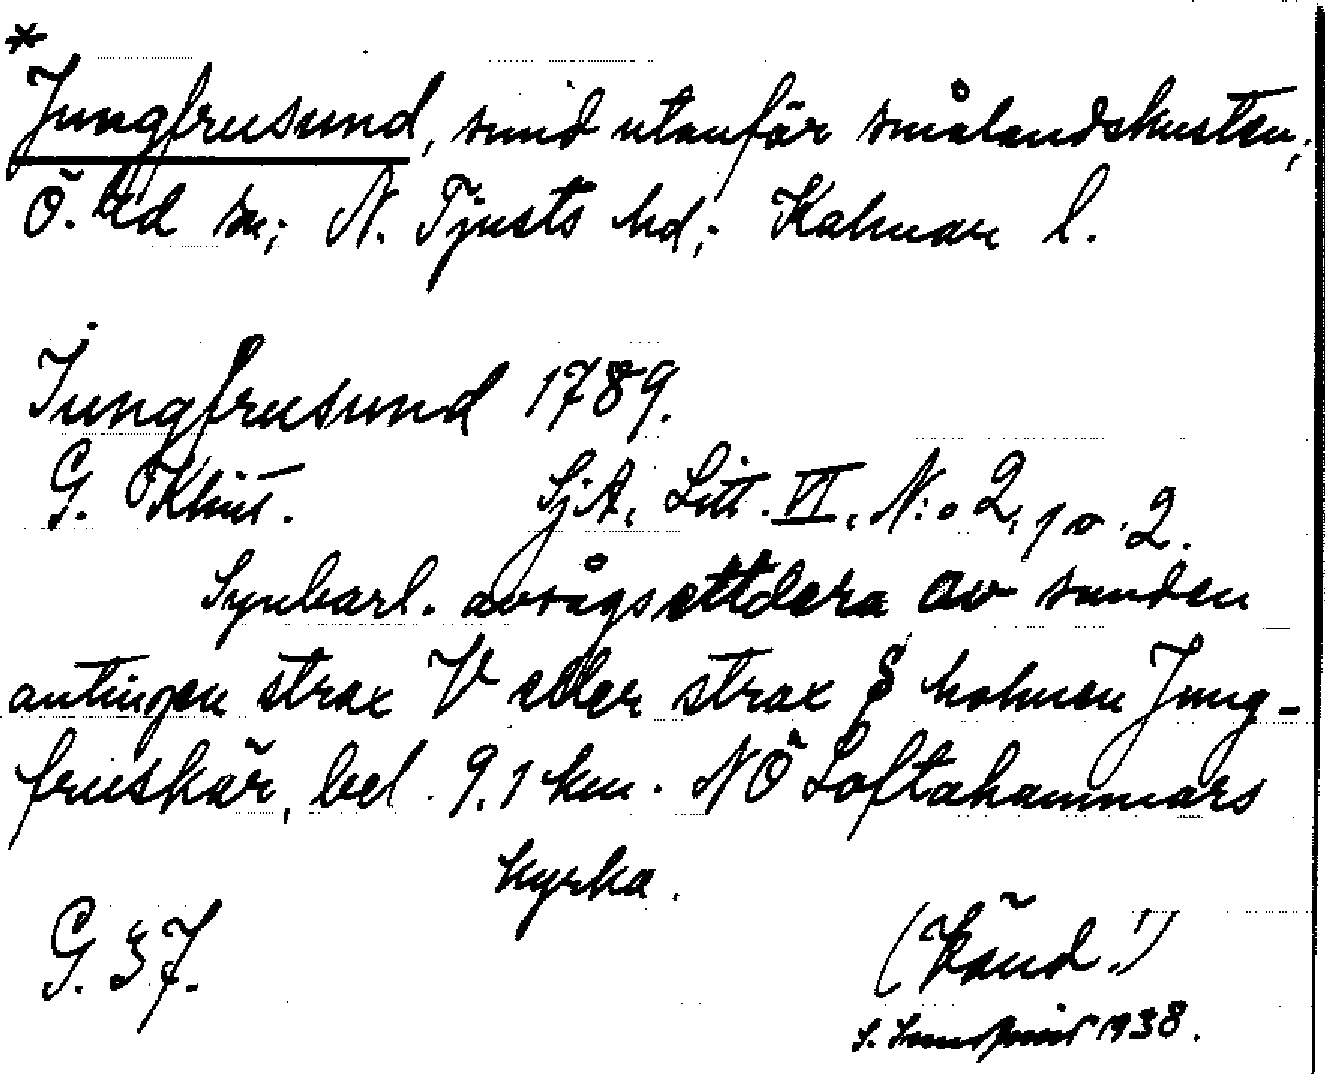 *
Jungfrusund, sund utanför smålandskusten;
Ö. Ed sn; N. Tjusts hd; Kalmar l.
Jungfrusund 1789.
G. Klint. SjA, Litt. VI, N:o 2, p. 2.
Synbarl. avsågs ettdera av sunden
antingen strax V eller strax S holmen Jung-
fruskär, bel. 9.1 km. NÖ Loftahammars
kyrka.
G. 37. (Känd!)
S. 1938.